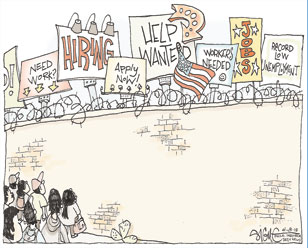 NEED
WORK?
HIRING
Apply
Now!
HELP
WANTED
WORKERS
NEEDED
JOBS
RECORD
LOW
UNEMPLOYMENT